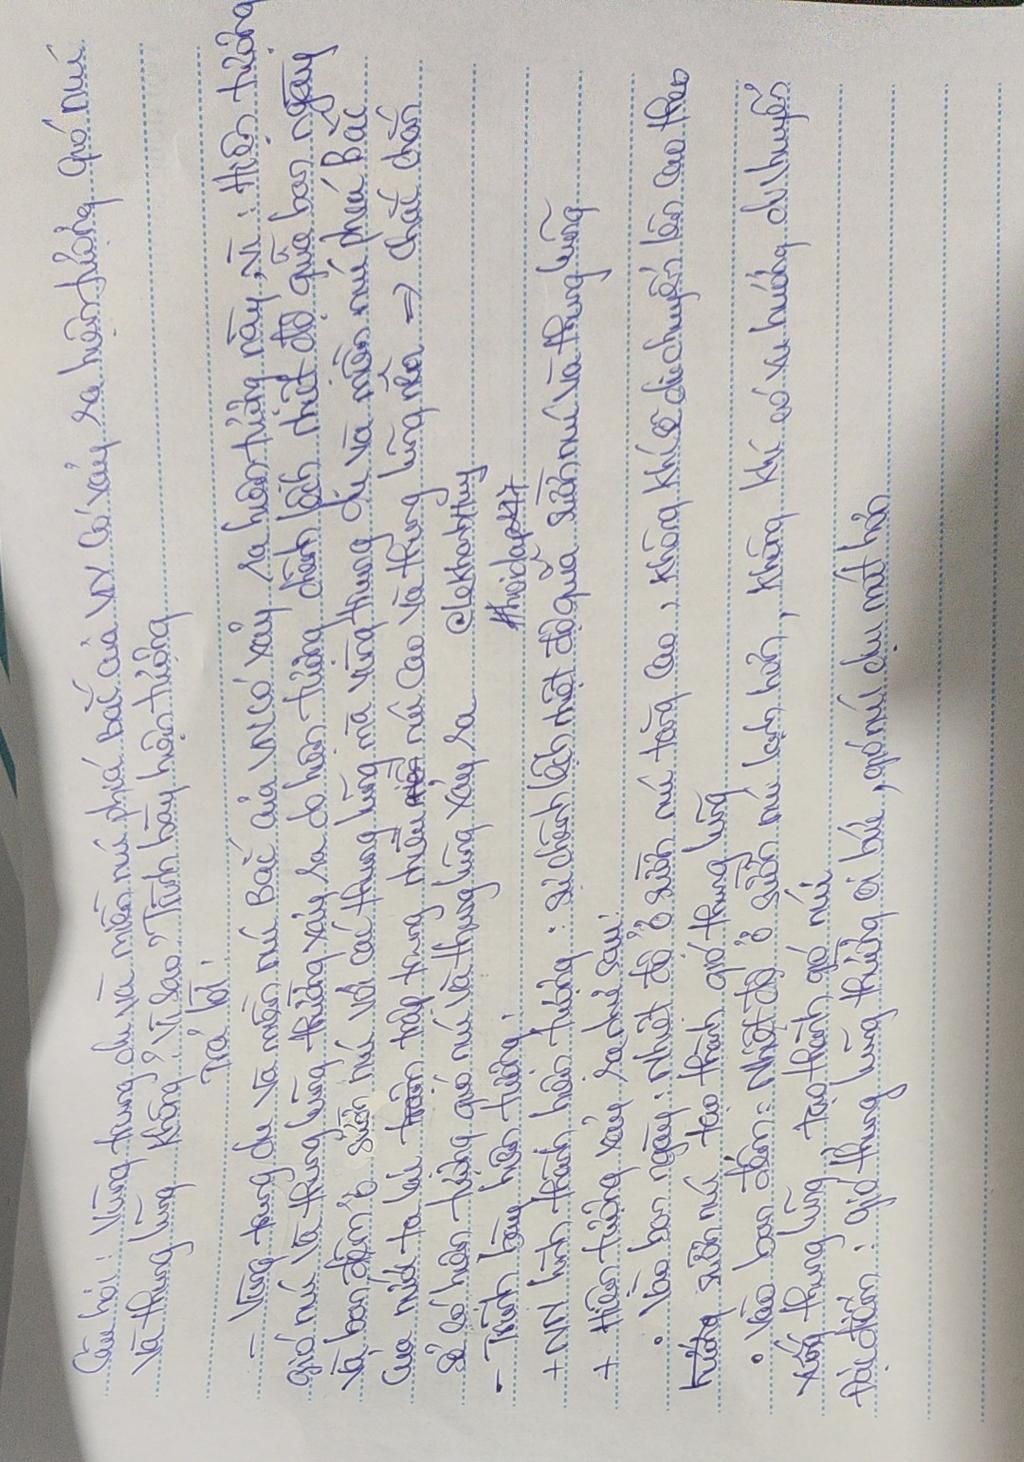 Câu hỏi: Vùng trung du và miền núi phía Bắc của VN có xảy ra hiện tượng gió núi
và thung lũng không? Vì sao? Trình bày hiện tượng
Trả lời:
- Vùng trung du và miền núi Bắc của VN có xảy ra hiện tượng này, vì: Hiện tượng
gió núi và thung lũng thường xảy ra do hiện tượng chênh lệch nhiệt độ giữa ban ngày
và ban đêm ở sườn núi với các thung lũng mà vùng trung du và miền núi phía Bắc
của nước ta lại tập trung nhiều núi cao và thung lũng nữa => chắc chắn
sẽ có hiện tượng gió núi và thung lũng xảy ra @lekhanhHuy
- Trình bày hiện tượng: #hoidap247
+ NN hình thành hiện tượng: sự chênh lệch nhiệt độ giữa sườn núi và thung lũng
+ Hiện tượng xảy ra như sau:
• Vào ban ngày: Nhiệt độ ở sườn núi tăng cao, không khí sẽ di chuyển lên cao theo
hướng sườn núi tạo thành gió thung lũng
• Vào ban đêm: Nhiệt độ ở sườn núi lạnh hơn, không khí có xu hướng di chuyển
xuống thung lũng tạo thành gió núi
Đặc điểm: gió thung lũng thường oi bức, gió núi dịu mát hơn